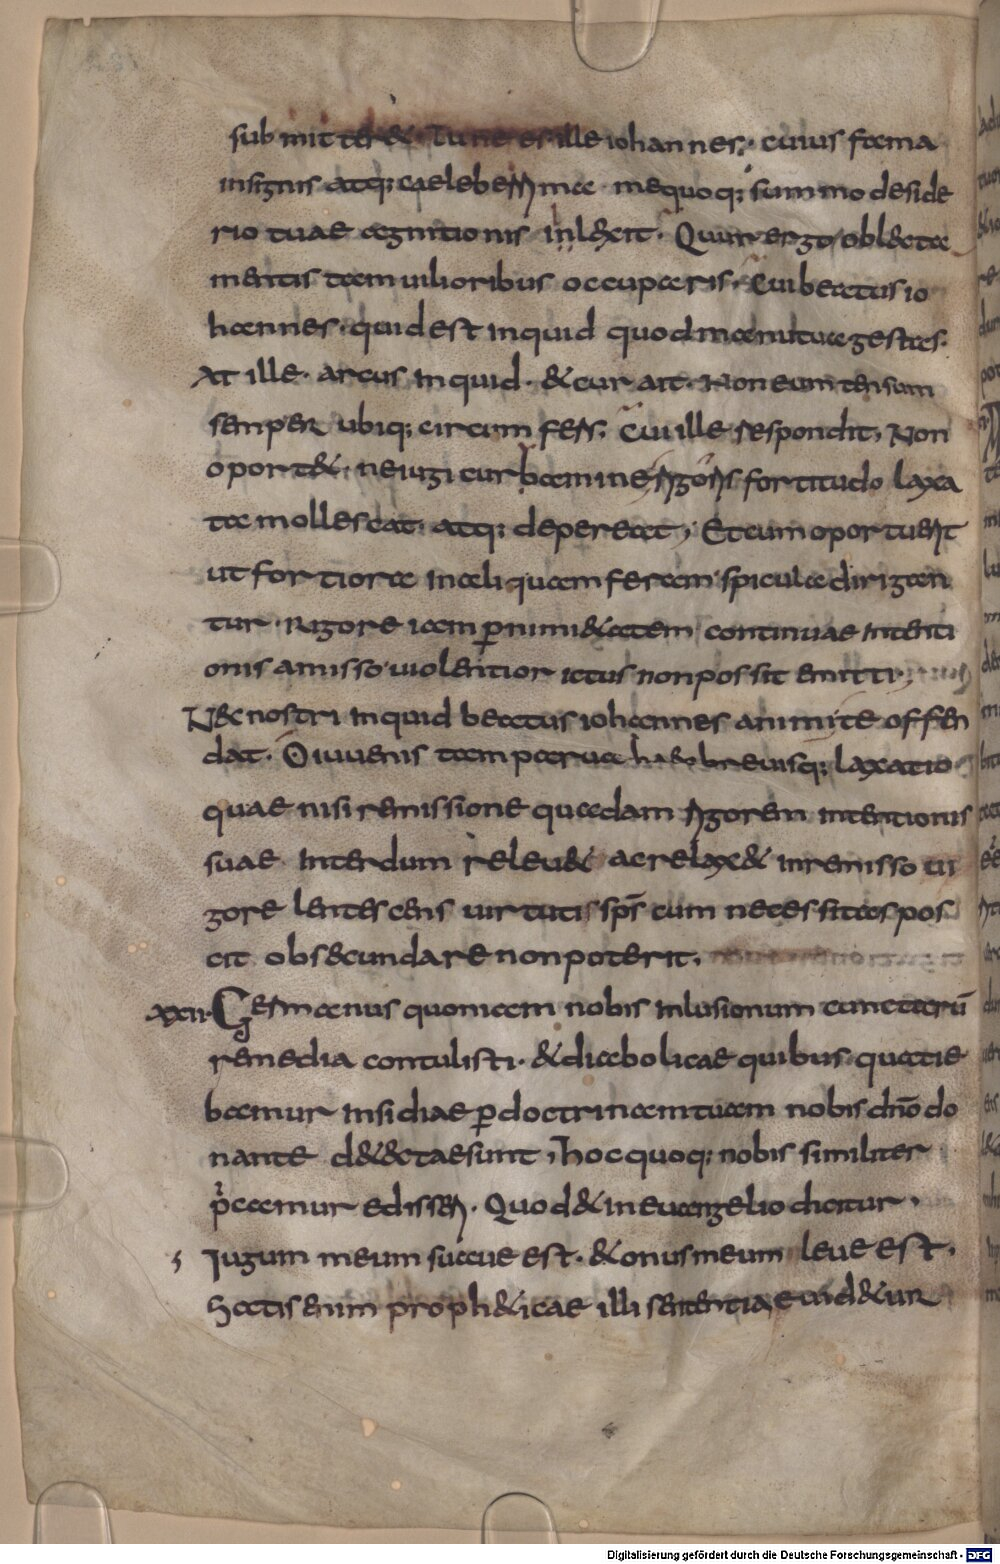 submitteret. Tu ne es ille iohannes, cuius fama
insignis atq; caeleberrima mequoq; summo deside
rio tuae agnitionis inlexit. Quur ergo oblecta
mentis tam uilioribus occuparis. Cui beatus io
hannes. quid est inquid quod manu tua gestas.
At ille. arcus inquid. & cur ait. Non eum tensum
semper ubiq; circum fers. Cui ille respondit, Non
oport&. ne iugi curbamine rigoris fortitudo laxa
ta mollescat. atq; depereat, Et cum oportuerit
ut fortiora in aliquam feram spicula dirigan
tur. Rigore iam p nimi&atem continuae intenti
onis amisso uiolentior ictus non possit emitti,
Nec nostri inquid beatus iohannes animi te offen
dat. O iuuenis tam parua haec breuisq; laxatio
quae nisi remissione quadam rigorem intentionis
suae interdum releu& ac relax& inremisso ui
gore lentescens uirtutis sps cum necessitas pos
cit obsecundare non poterit.
xxii. Germanus quoniam nobis inlusionum cunctarū
remedia contulisti. & diabolicae quibus quatie
bamur insidiae p doctrinam tuam nobis dnō do
nante d&ectae sunt, hoc quoq; nobis similiter
p̃camur edisseri. Quod & in euangelio dicitur,
Iugum meum suaue est. & onus meum leue est.
Satis enim proph&icae illi sententiae uid&ur
Digitalisierung gefördert durch die Deutsche Forschungsgemeinschaft - DFG